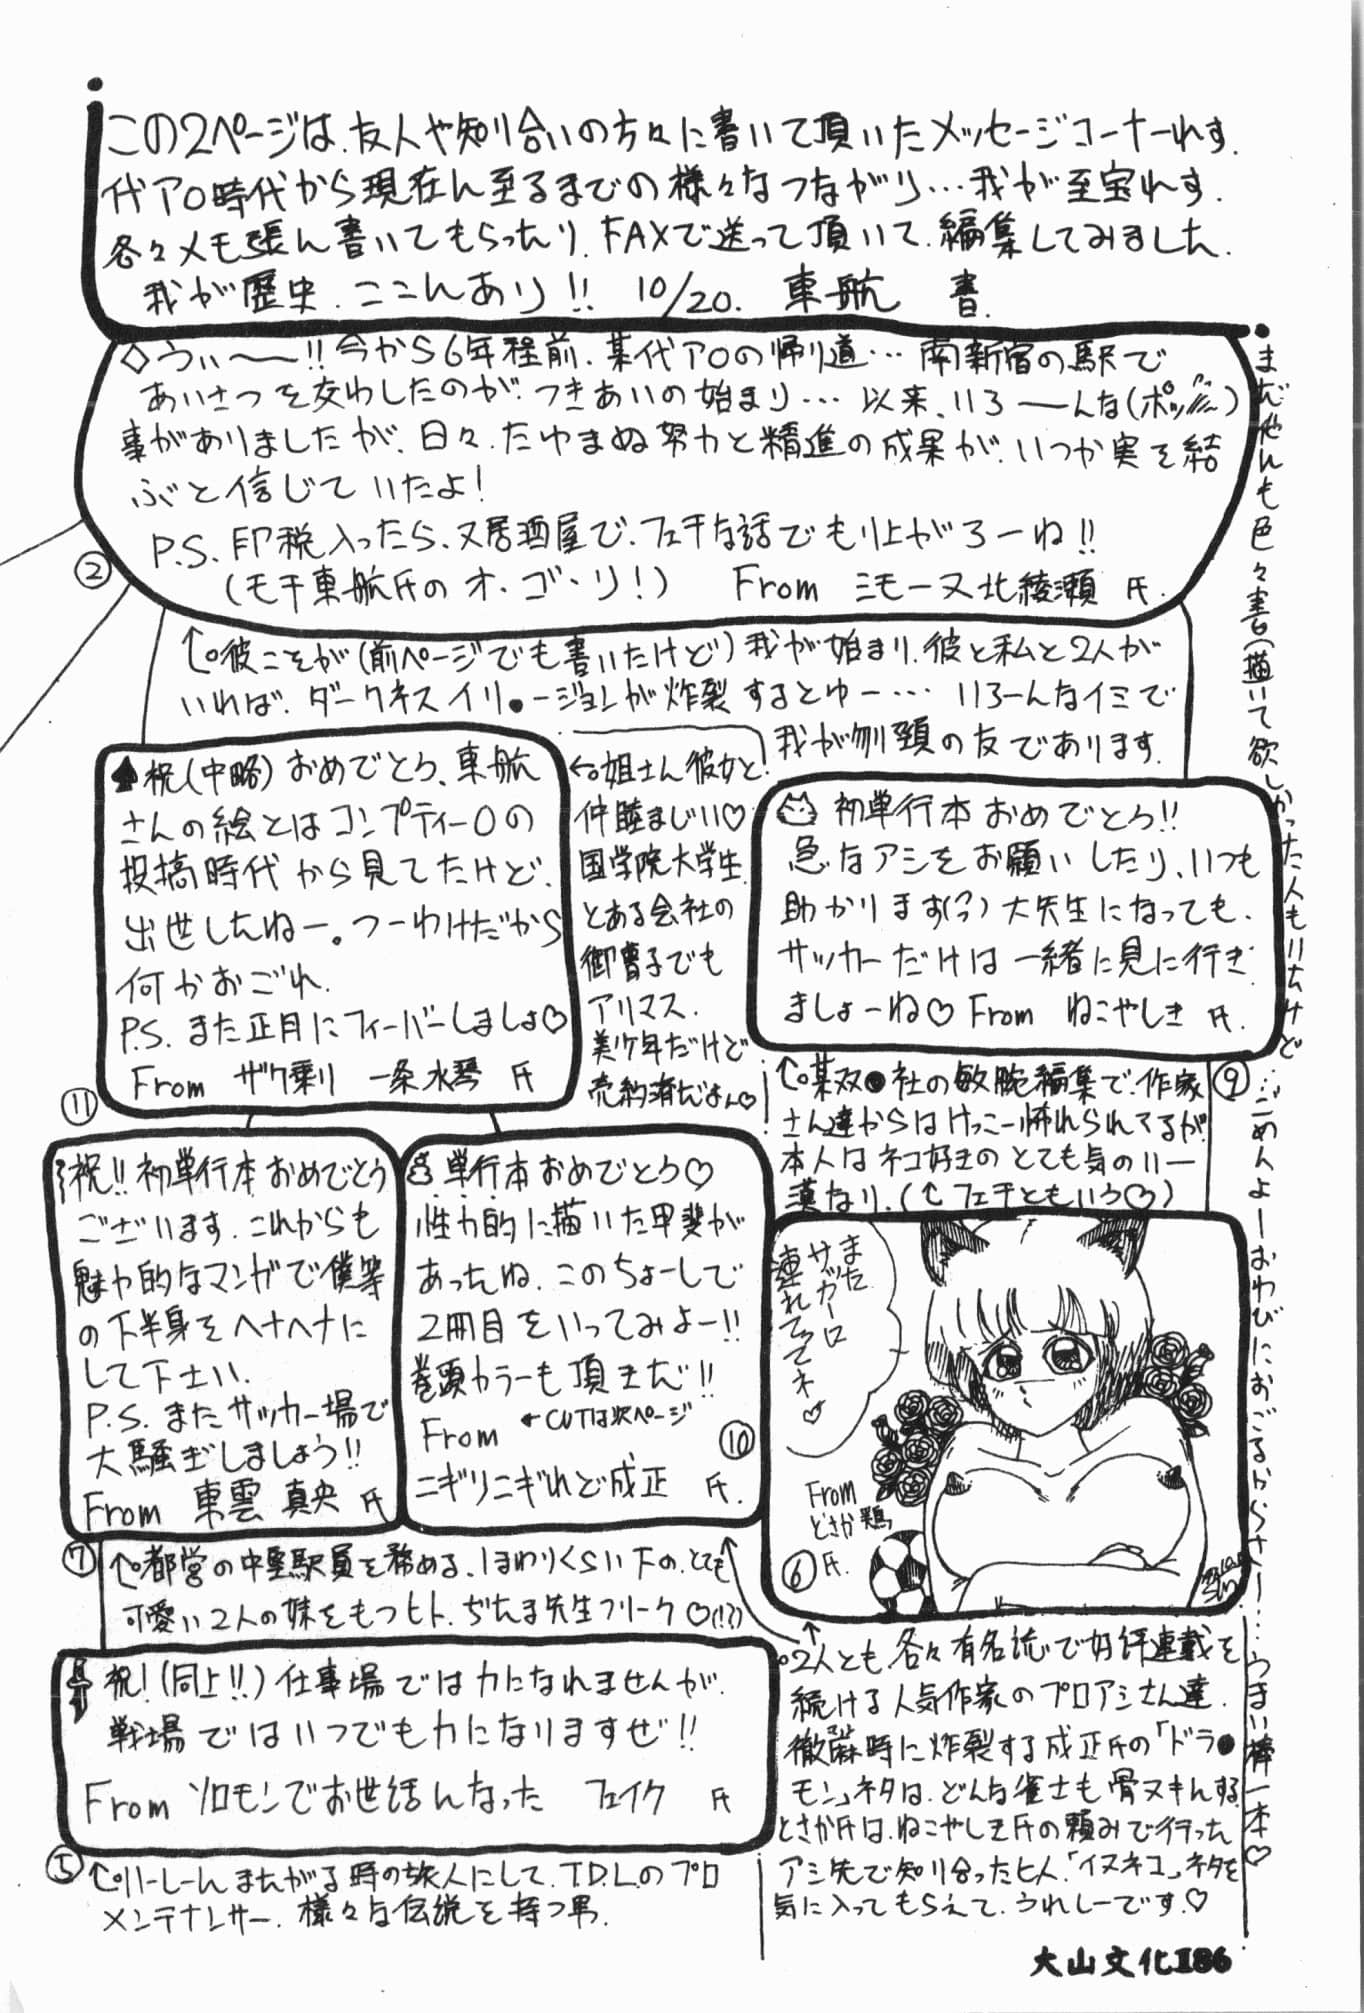 この2ページは、友人や知り合いの方々に書いて頂いたメッセージコーナーれす.
代ア○時代から現在ん至るまでの様々なつながり…我が至宝れす.
各々メモ張ん書いてもらったり、FAXで送って頂いて、編集してみました.
我が歴史、ここんあり!! 10/20. 東航 書.
◇うぃ〜〜!!今から6年程前、某代ア○の帰り道…南新宿の駅で
あいさつを交わしたのが、つきあいの始まり…以来、いろ〜〜んな(ポッ)
事がありましたが、日々、たゆまぬ努力と精進の成果が、いつか実を結
ぶと信じていたよ!
P.S. 印税入ったら、又居酒屋で、フェチな話でもり上がろーね!!
(モチ東航氏のオ・ゴ・リ!) From ミモーヌ北綾瀬 氏.
②
↑彼こそが(前ページでも書いたけど)我が始まり、彼と私と2人が
いれば、ダークネスイリ●ージョンが炸裂するとゆー…いろーんなイミで
我が刎頸の友であります.
♠祝(中略)おめでとう、東航
さんの絵とはコンプティー○の
投稿時代から見てたけど、
出世したねー。つーわけだから
何かおごれ.
P.S. また正月にフィーバーしましょ♡
From ザク乗り 一条水琴 氏
⑪
←姐さん彼女と
仲睦まじい♡
国学院大学生.
とある会社の
御曹子でも
アリマス.
美少年だけど
売約済だよん♡
初単行本おめでとう!!
急なアシをお願いしたり、いつも
助かります(?)大先生になっても、
サッカーだけは一緒に見に行き
ましょーね♡ From ねこやしき 氏.
⑨
↑某双●社の敏腕編集で、作家
さん達からはけっこー怖れられてるが、
本人はネコ好きのとても気のいー
漢なり.(↑フェチともいう♡)
祝!!初単行本おめでとう
ございます.これからも
魅力的なマンガで僕等
の下半身をヘナヘナに
して下さい.
P.S. またサッカー場で
大騒ぎしましょう!!
From 東雲 真央 氏
⑦
単行本おめでとう♡
性力的に描いた甲斐が
あったね、このちょーしで
2冊目をいってみよー!!
巻頭カラーも頂きだ!!
From ←CUTは次ページ
ニギリニギれど成正 氏.
⑩
また
サッカーに
連れてってネ♡
From
どさか鶏
氏.
⑥
↑都営の中堅駅員を務める、1まわりくらい下の、とても
可愛い2人の妹をもつヒト、ぢたま先生フリーク♡(!?)
祝!(同上!!)仕事場では力になれませんが、
戦場ではいつでも力になりますぜ!!
From ソロモンでお世話んなった フェイク 氏
⑤
↑リーしーんまたがる時の旅人にして、T.D.L.のプロ
メンテナンサー、様々な伝説を持つ男.
2人とも、各々有名誌で好評連載を
続ける人気作家のプロアシさん達.
徹麻時に炸裂する成正氏の「ドラ●
モン」ネタは、どんな雀士も骨ヌキんする.
とさか氏は、ねこやしき氏の頼みで行った
アシ先で知り合ったヒト、「イヌネコ」ネタを
気に入ってもらえて、うれしーです.♡
まだやんも色々書(描)いて欲しかった人もいたけど…ごめんよーおわびにおごるからさー…うまい棒一本♡
大山文化Ⅱ86